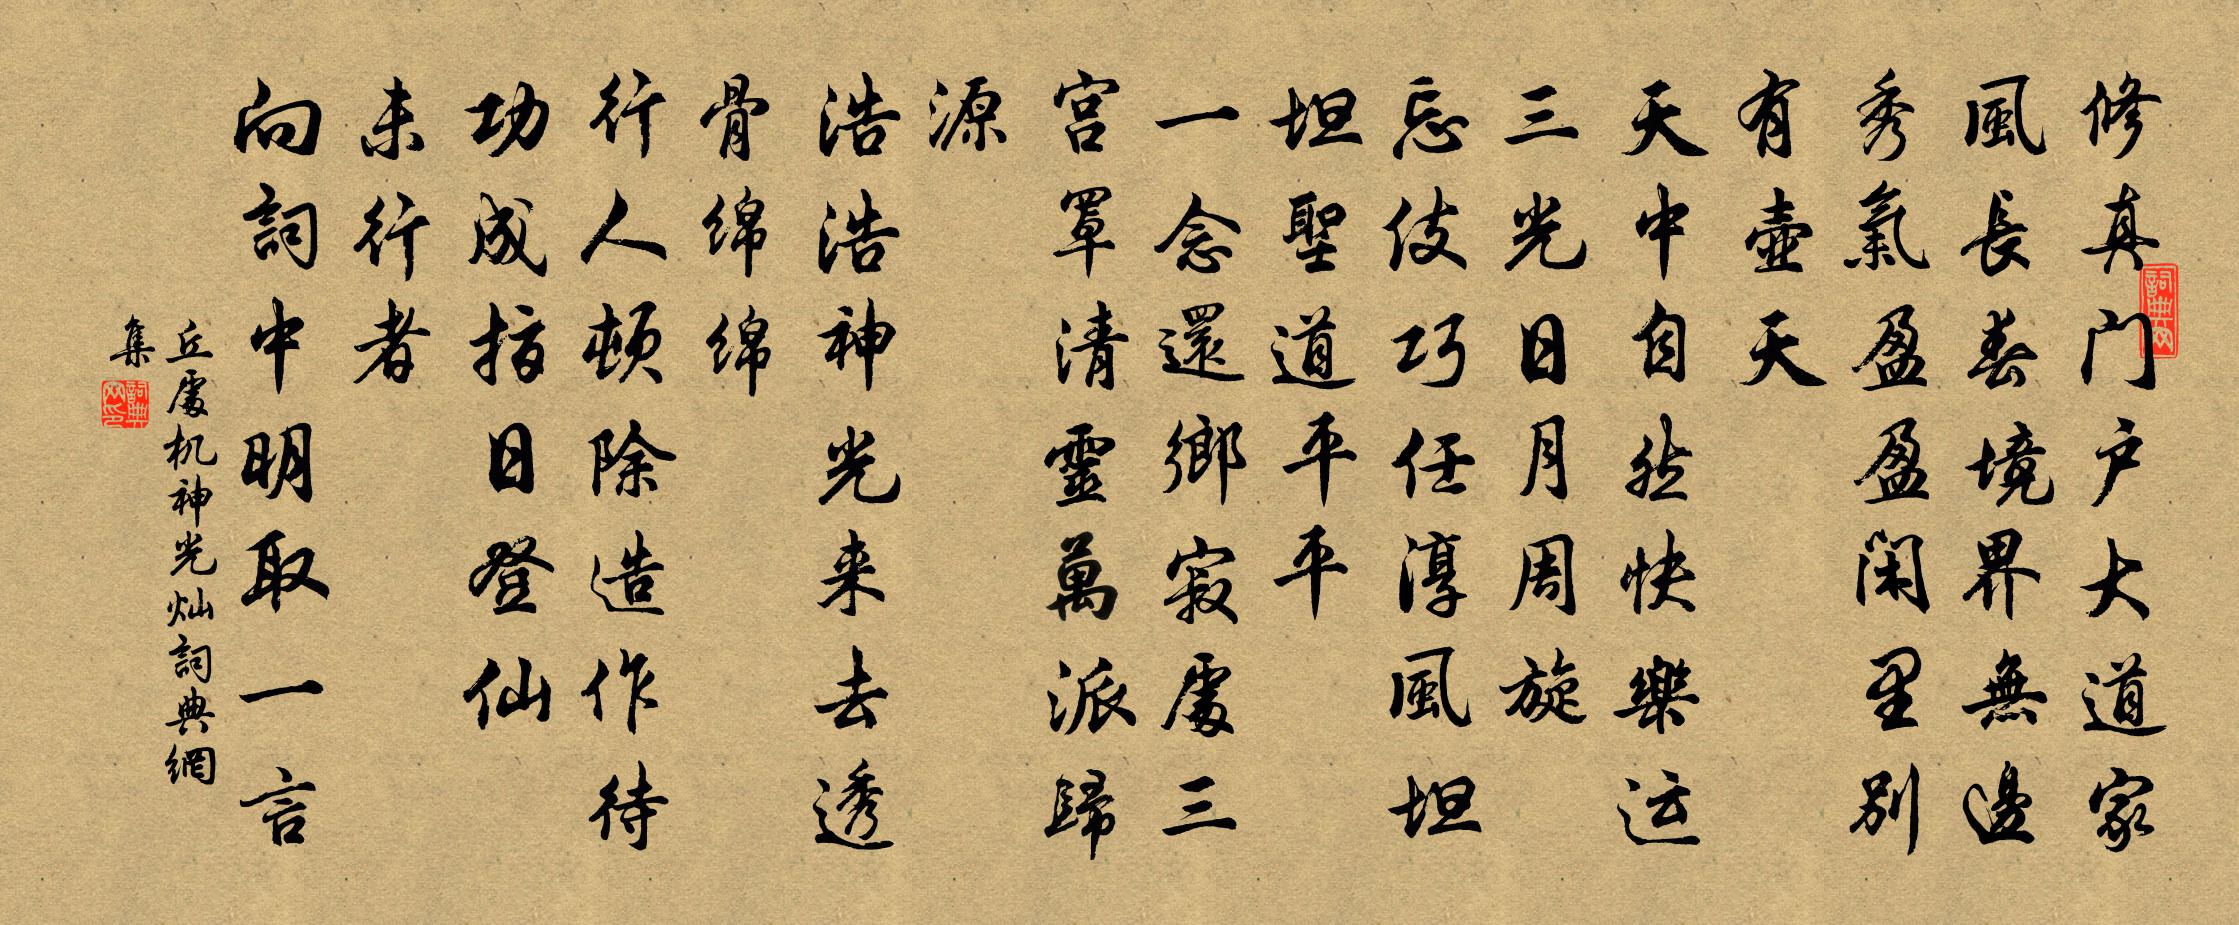 修真门户大道家
風長春境界無邊
秀氣盈盈闲里别
有壺天
天中自然快樂运
三光日月周旋
忘伎巧任淳風坦
坦聖道平平
一念還鄉寂處三
宫罩清靈萬派歸
源
浩浩神光来去透
骨绵绵
行人顿除造作待
功成指日登仙
未行者
向詞中明取一言
丘處机神光灿詞典網
集
詞典网
詞典网印